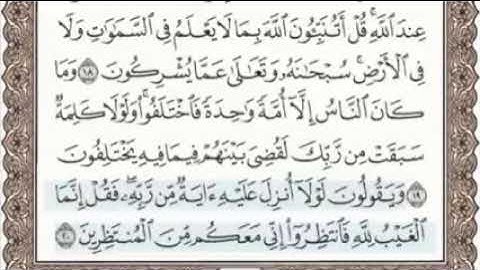 عِندَ ٱللَّهِۚ قُلۡ أَتُنَبِّـُٔونَ ٱللَّهَ بِمَا لَا يَعۡلَمُ فِي ٱلسَّمَٰوَٰتِ وَلَا
فِي ٱلۡأَرۡضِۚ سُبۡحَٰنَهُۥ وَتَعَٰلَىٰ عَمَّا يُشۡرِكُونَ ١٨ وَمَا
كَانَ ٱلنَّاسُ إِلَّآ أُمَّةٗ وَٰحِدَةٗ فَٱخۡتَلَفُواْۚ وَلَوۡلَا كَلِمَةٞ
سَبَقَتۡ مِن رَّبِّكَ لَقُضِيَ بَيۡنَهُمۡ فِيمَا فِيهِ يَخۡتَلِفُونَ
١٩ وَيَقُولُونَ لَوۡلَآ أُنزِلَ عَلَيۡهِ ءَايَةٞ مِّن رَّبِّهِۦۖ فَقُلۡ إِنَّمَا
ٱلۡغَيۡبُ لِلَّهِ فَٱنتَظِرُوٓاْ إِنِّي مَعَكُم مِّنَ ٱلۡمُنتَظِرِينَ ٢٠